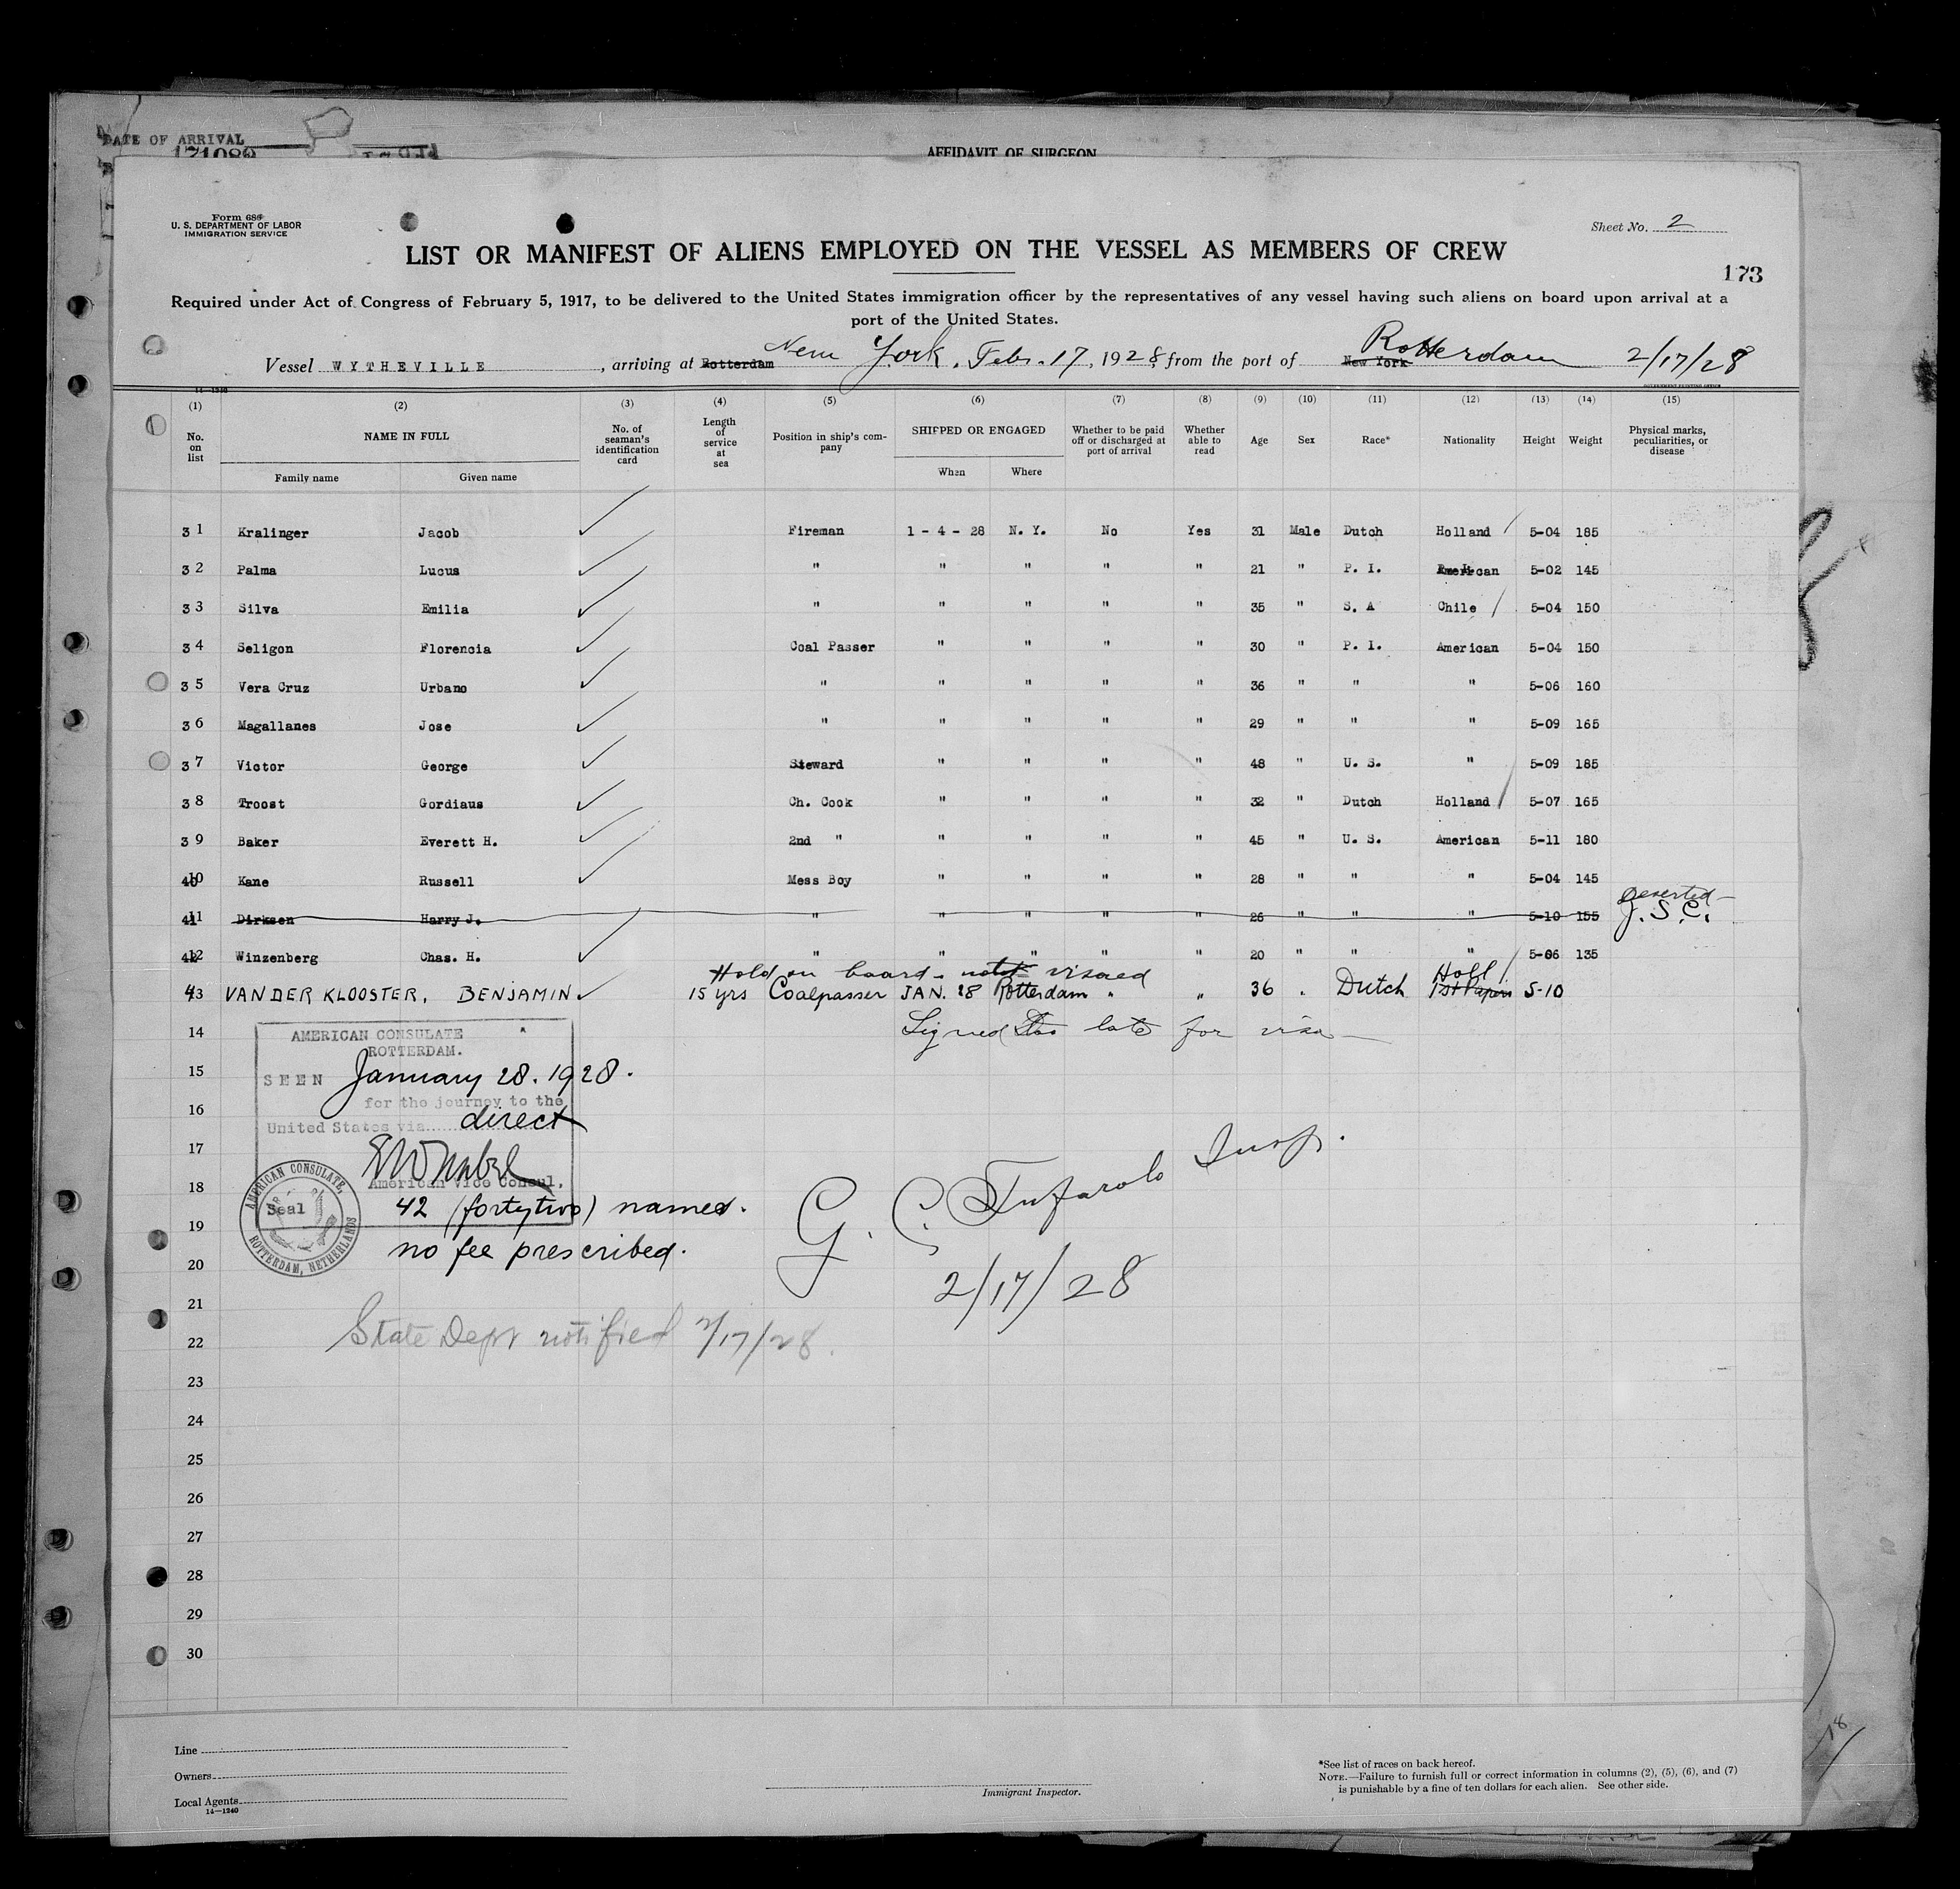 DATE OF ARRIVAL
171089
AFFIDAVIT OF SURGEON
Form 686
U. S. DEPARTMENT OF LABOR
IMMIGRATION SERVICE
Sheet No. 2
LIST OR MANIFEST OF ALIENS EMPLOYED ON THE VESSEL AS MEMBERS OF CREW
173
Required under Act of Congress of February 5, 1917, to be delivered to the United States immigration officer by the representatives of any vessel having such aliens on board upon arrival at a
port of the United States.
Vessel WYTHEVILLE, arriving at Rotterdam New York, Feb. 17, 1928, from the port of New York Rotterdam 2/17/28
14-1240 GOVERNMENT PRINTING OFFICE
(1) (2) (3) (4) (5) (6) (7) (8) (9) (10) (11) (12) (13) (14) (15)
No. on list NAME IN FULL No. of seaman's identification card Length of service at sea Position in ship's company SHIPPED OR ENGAGED Whether to be paid off or discharged at port of arrival Whether able to read Age Sex Race* Nationality Height Weight Physical marks, peculiarities, or disease
Family name Given name When Where
31 Kralinger Jacob Fireman 1 - 4 - 28 N. Y. No Yes 31 Male Dutch Holland 5-04 185
32 Palma Lucus " " " " " 21 " P. I. American 5-02 145
33 Silva Emilia " " " " " 35 " S. A Chile 5-04 150
34 Seligon Florencia Coal Passer " " " " 30 " P. I. American 5-04 150
35 Vera Cruz Urbano " " " " " 36 " " " 5-06 160
36 Magallanes Jose " " " " " 29 " " " 5-09 165
37 Victor George Steward " " " " 48 " U. S. " 5-09 185
38 Troost Gordiaus Ch. Cook " " " " 32 " Dutch Holland 5-07 165
39 Baker Everett H. 2nd " " " " " 45 " U. S. American 5-11 180
40 10 Kane Russell Mess Boy " " " " 28 " " " 5-04 145
41 11 Dirksen Harry J. " " " " " 26 " " " 5-10 155 Deserted - J. S. C.
42 12 Winzenberg Chas. H. " " " " " 20 " " " 5-06 135
Hold on board - not visaed
43 VAN DER KLOOSTER, BENJAMIN 15 yrs Coalpasser JAN. 28 Rotterdam " " 36 " Dutch Holl 1st Papers 5-10
14 Signed too late for visa
AMERICAN CONSULATE
ROTTERDAM.
15 SEEN January 28. 1928.
for the journey to the
16 United States via direct
17
American Vice Consul.
AMERICAN CONSULATE, ROTTERDAM, NETHERLANDS
Seal
18 42 (fortytwo) names.
19 no fee prescribed.
G. C. Tufarolo Insp.
20 2/17/28
21
22 State Dept notified 2/17/28.
23
24
25
26
27
28
29
30
18
Line
Owners
Local Agents
14-1240
Immigrant Inspector.
*See list of races on back hereof.
NOTE.—Failure to furnish full or correct information in columns (2), (5), (6), and (7)
is punishable by a fine of ten dollars for each alien. See other side.